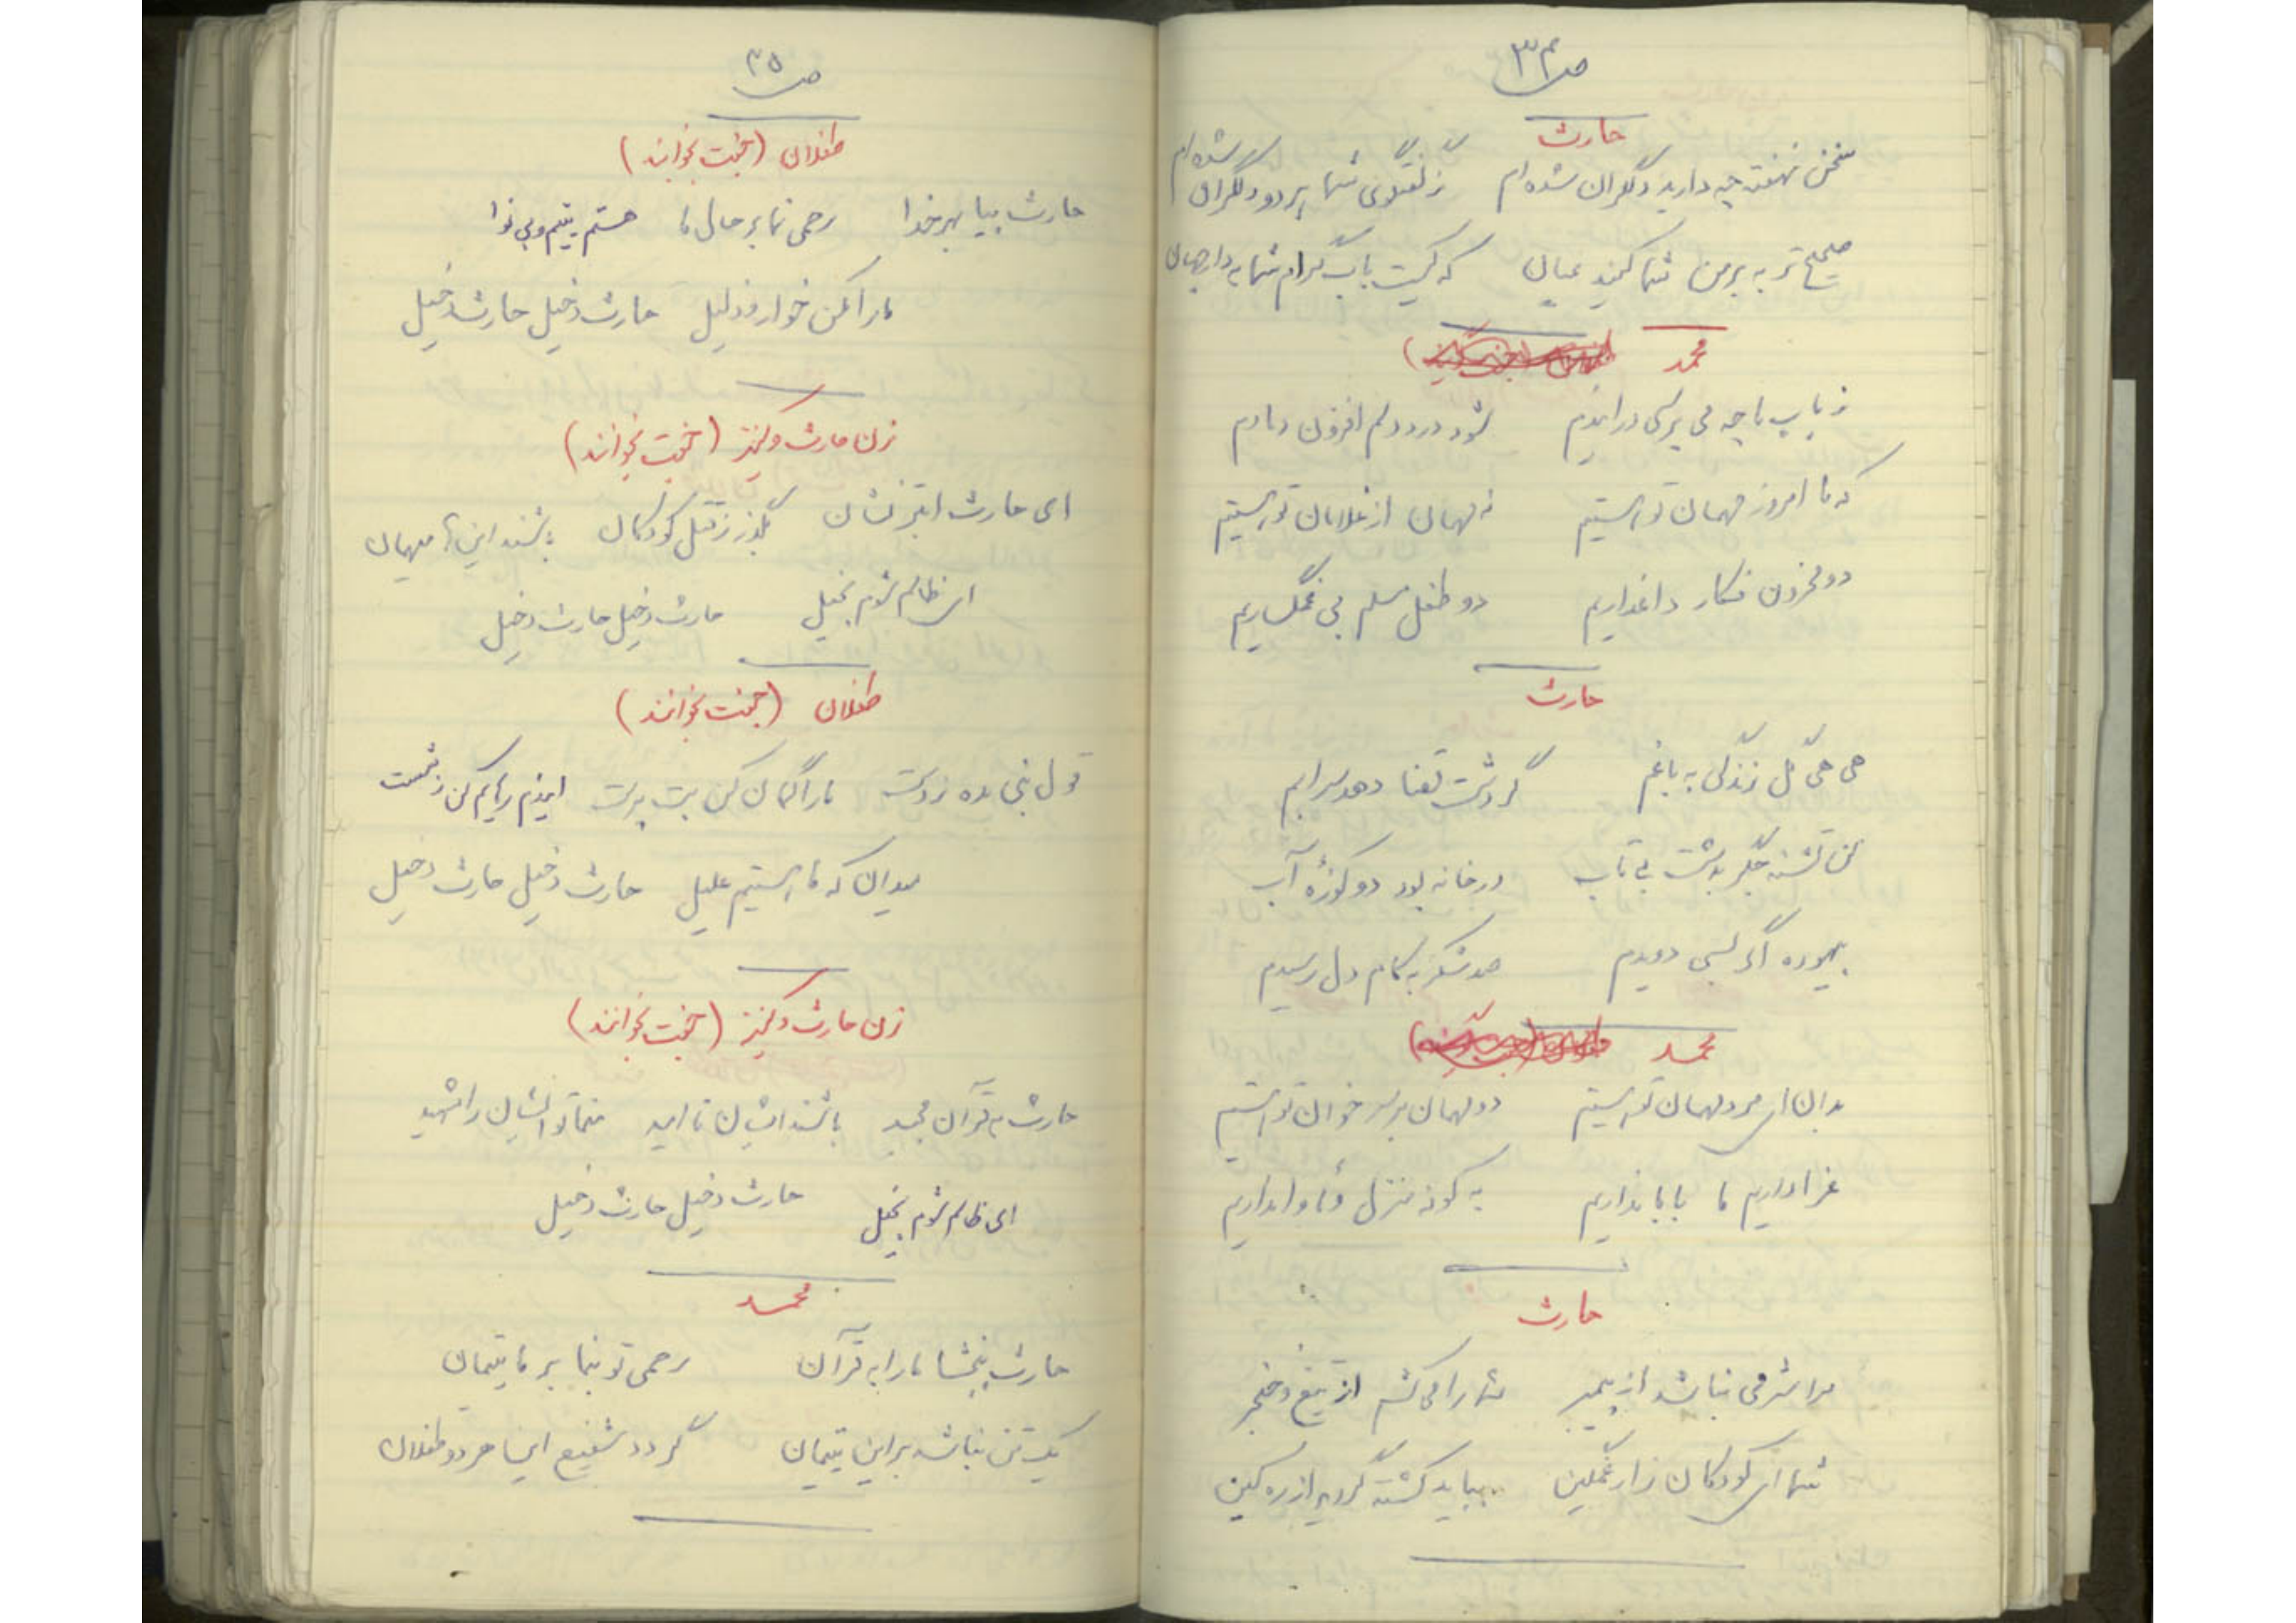 ص ۳۴
حارث
سخن نهفته چه دارید دگران شده‌ام ز گفتگوی شما پر دو دلگران شده‌ام
صحیح‌تر به بر من شما کنید عیان که کیست باب گرام شما به دار جهان
محمد
ز باب ما چه می پرسی در ایندم شود درد دلم افزون دمادم
که ما امروز مهمان تو هستیم نه مهمان از غلامان تو هستیم
دو محزون فکار داغداریم دو طفل مسلم بی غمگساریم
حارث
هی هی گل زندگی به باغم گردش قضا دهد سرابم
من تشنه جگر به دشت بی تاب در خانه بود دو کوزۀ آب
بیهوده اگر بسی دویدم صد شکر به کام دل رسیدم
محمد
بدان ای مرد مهمان تو هستیم دو مهمان بر سر خوان تو هستیم
عزاداریم ما بابا نداریم به کوفه منزل و مأوا نداریم
حارث
مرا شرمی نباشد از پیمبر شما را می کشم از تیغ و خنجر
شما ای کودکان زار غمگین بباید کشته گردید از ره کین
ص ۳۵
طفلان (جفت بخوانند)
حارث بیا بهر خدا رحمی نما بر حال ما هستم یتیم و بی نوا
ما را مکن خوار و ذلیل حارث دخیل حارث دخیل
زن حارث و کنیز (جفت بخوانند)
ای حارث ابتر نشان بگذر ز قتل کودکان باشند این‌ها میهمان
ای ظالم شوم بخیل حارث دخیل حارث دخیل
طفلان (جفت بخوانند)
قول نبی مده ز دست ما را گمان کن بت پرست ایندم رهایم کن ز شست
میدان که ما هستیم علیل حارث دخیل حارث دخیل
زن حارث و کنیز (جفت بخوانند)
حارث به قرآن مجید باشند ایشان نا امید منما تو ایشان را شهید
ای ظالم شوم بخیل حارث دخیل حارث دخیل
محمد
حارث ببخشا ما را به قرآن رحمی تو بنما بر ما یتیمان
یک تن نباشد بر این یتیمان گردد شفیع این هر دو طفلان